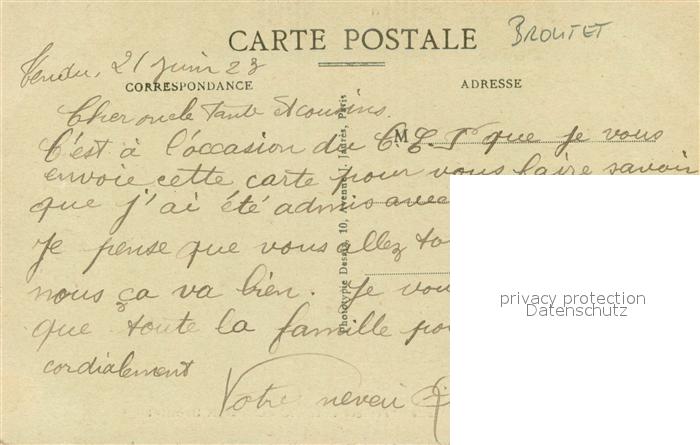 CARTE POSTALE
BROUTET
Vendu, 21 juin 23
CORRESPONDANCE
ADRESSE
Cher oncle Tante et cousins.
C'est à l'occasion du C.E.P que je vous
M
envoie cette carte pour vous faire savoir
que j'ai été admis avec
Je pense que vous allez to
nous ça va bien. Je vou
que toute la famille
cordialement
Votre neveu
Phototypie Desaix, 10, Avenue J. Jaurès, Paris
privacy protection
Datenschutz